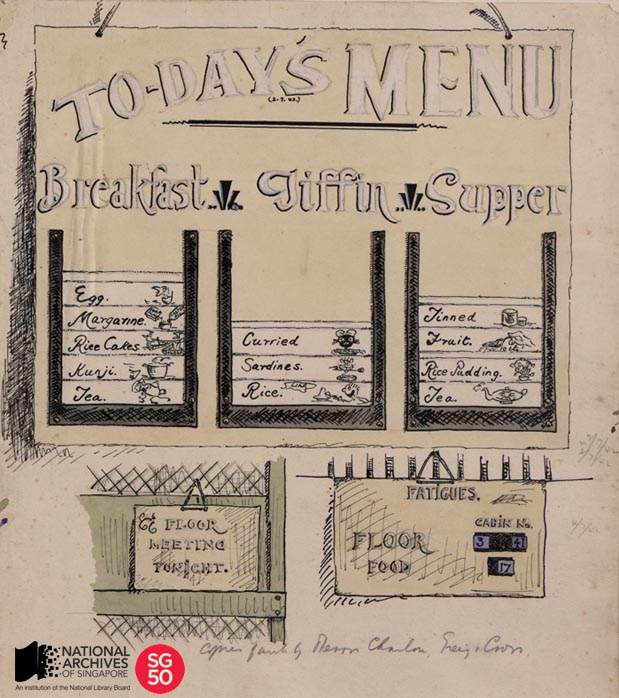 TO-DAY'S MENU
Breakfast Tiffin Supper
Egg.
Margarine.
Rice Cakes.
Kunji.
Tea.
Curried
Sardines.
Rice.
Tinned
Fruit.
Rice Pudding.
Tea.
FLOOR
MEETING
TONIGHT.
FATIGUES.
CABIN No.
FLOOR 3 41
FOOD 17
by
NATIONAL
ARCHIVES
OF SINGAPORE
An institution of the National Library Board
SG
50